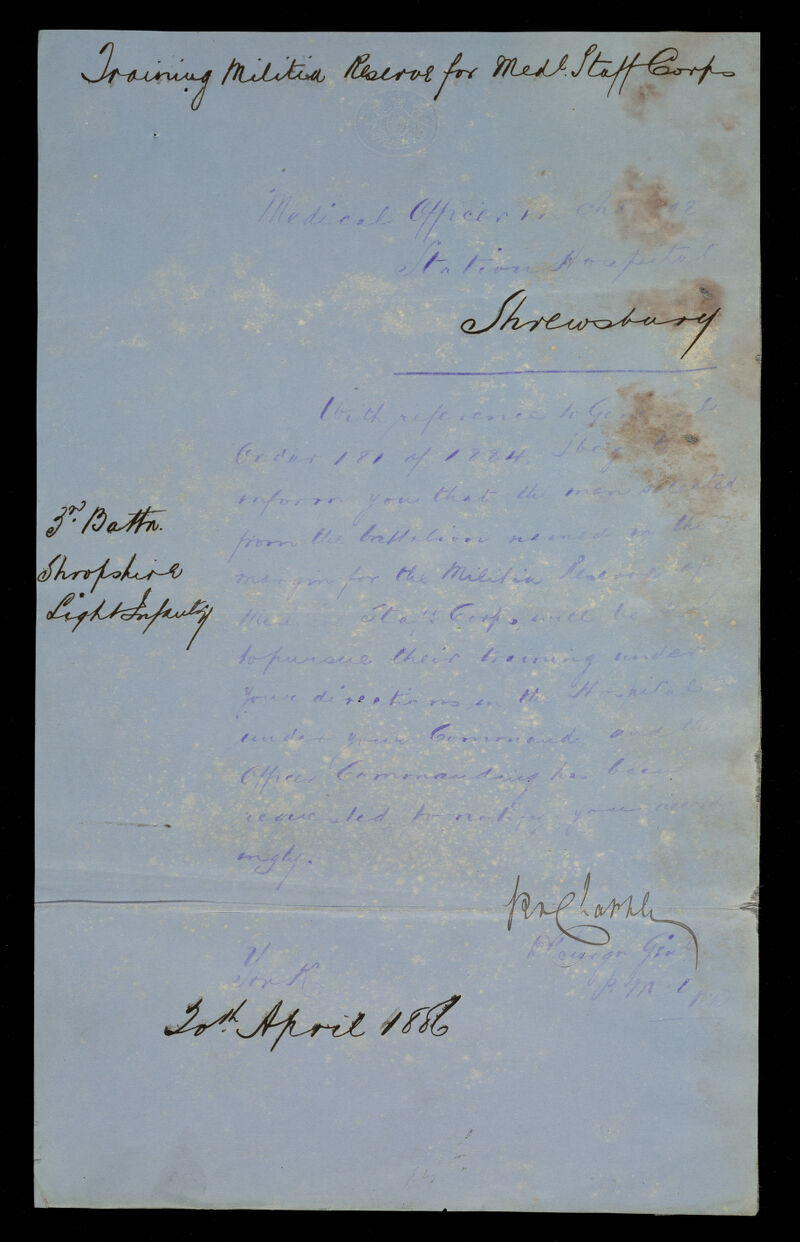 Training Militia Reserve for Medl. Staff Corps
Medical Officer in Charge
Station Hospital
Shrewsbury
With reference to General
Order 181 of 1884 I beg to
inform you that the men selected
from the battalion named in the
margin for the Militia Reserve of
Medical Staff Corps will be
to pursue their training under
your directions in the Hospital
under your Command and the
Officer Commanding has been
requested to notify you accord
ingly.
3rd Battn.
Shropshire
Light Infantry
Dy Surgn Genl
P.M.O.
York
20th April 1886